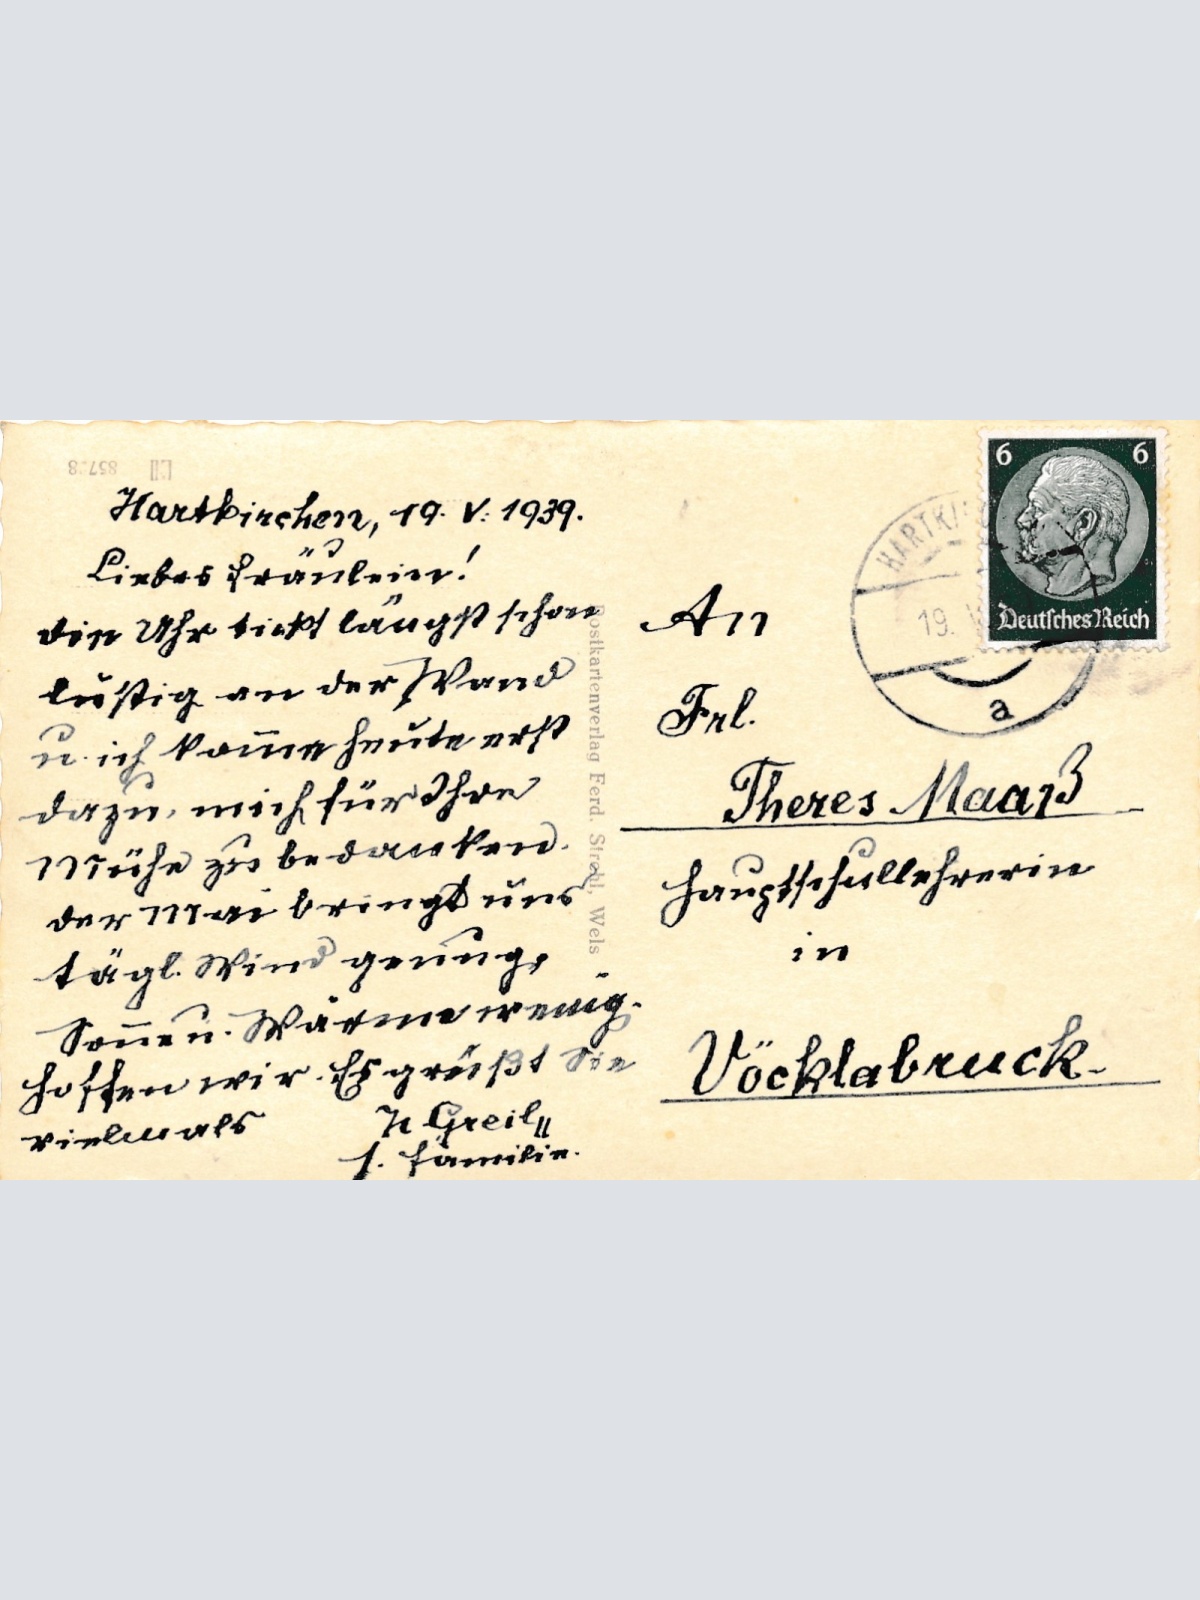 Hartkirchen, 19. V. 1939.
Liebes Fräulein!
die Uhr tickt längst schon
lustig an der Wand
u. ich komme heute erst
dazu, mich für Ihre
Mühe zu bedanken.
der Mai bringt uns
tägl. Wind genung,
Sonne u. Wärme wenig.
hoffen wir. Es grüßt Sie
vielmals
Greil
s. Familie.
Postkartenverlag Ferd. Strahl, Wels
6 6
Deutsches Reich
19. V
a
An
Frl.
Theres Maarß
Hauptschullehrerin
in
Vöcklabruck.